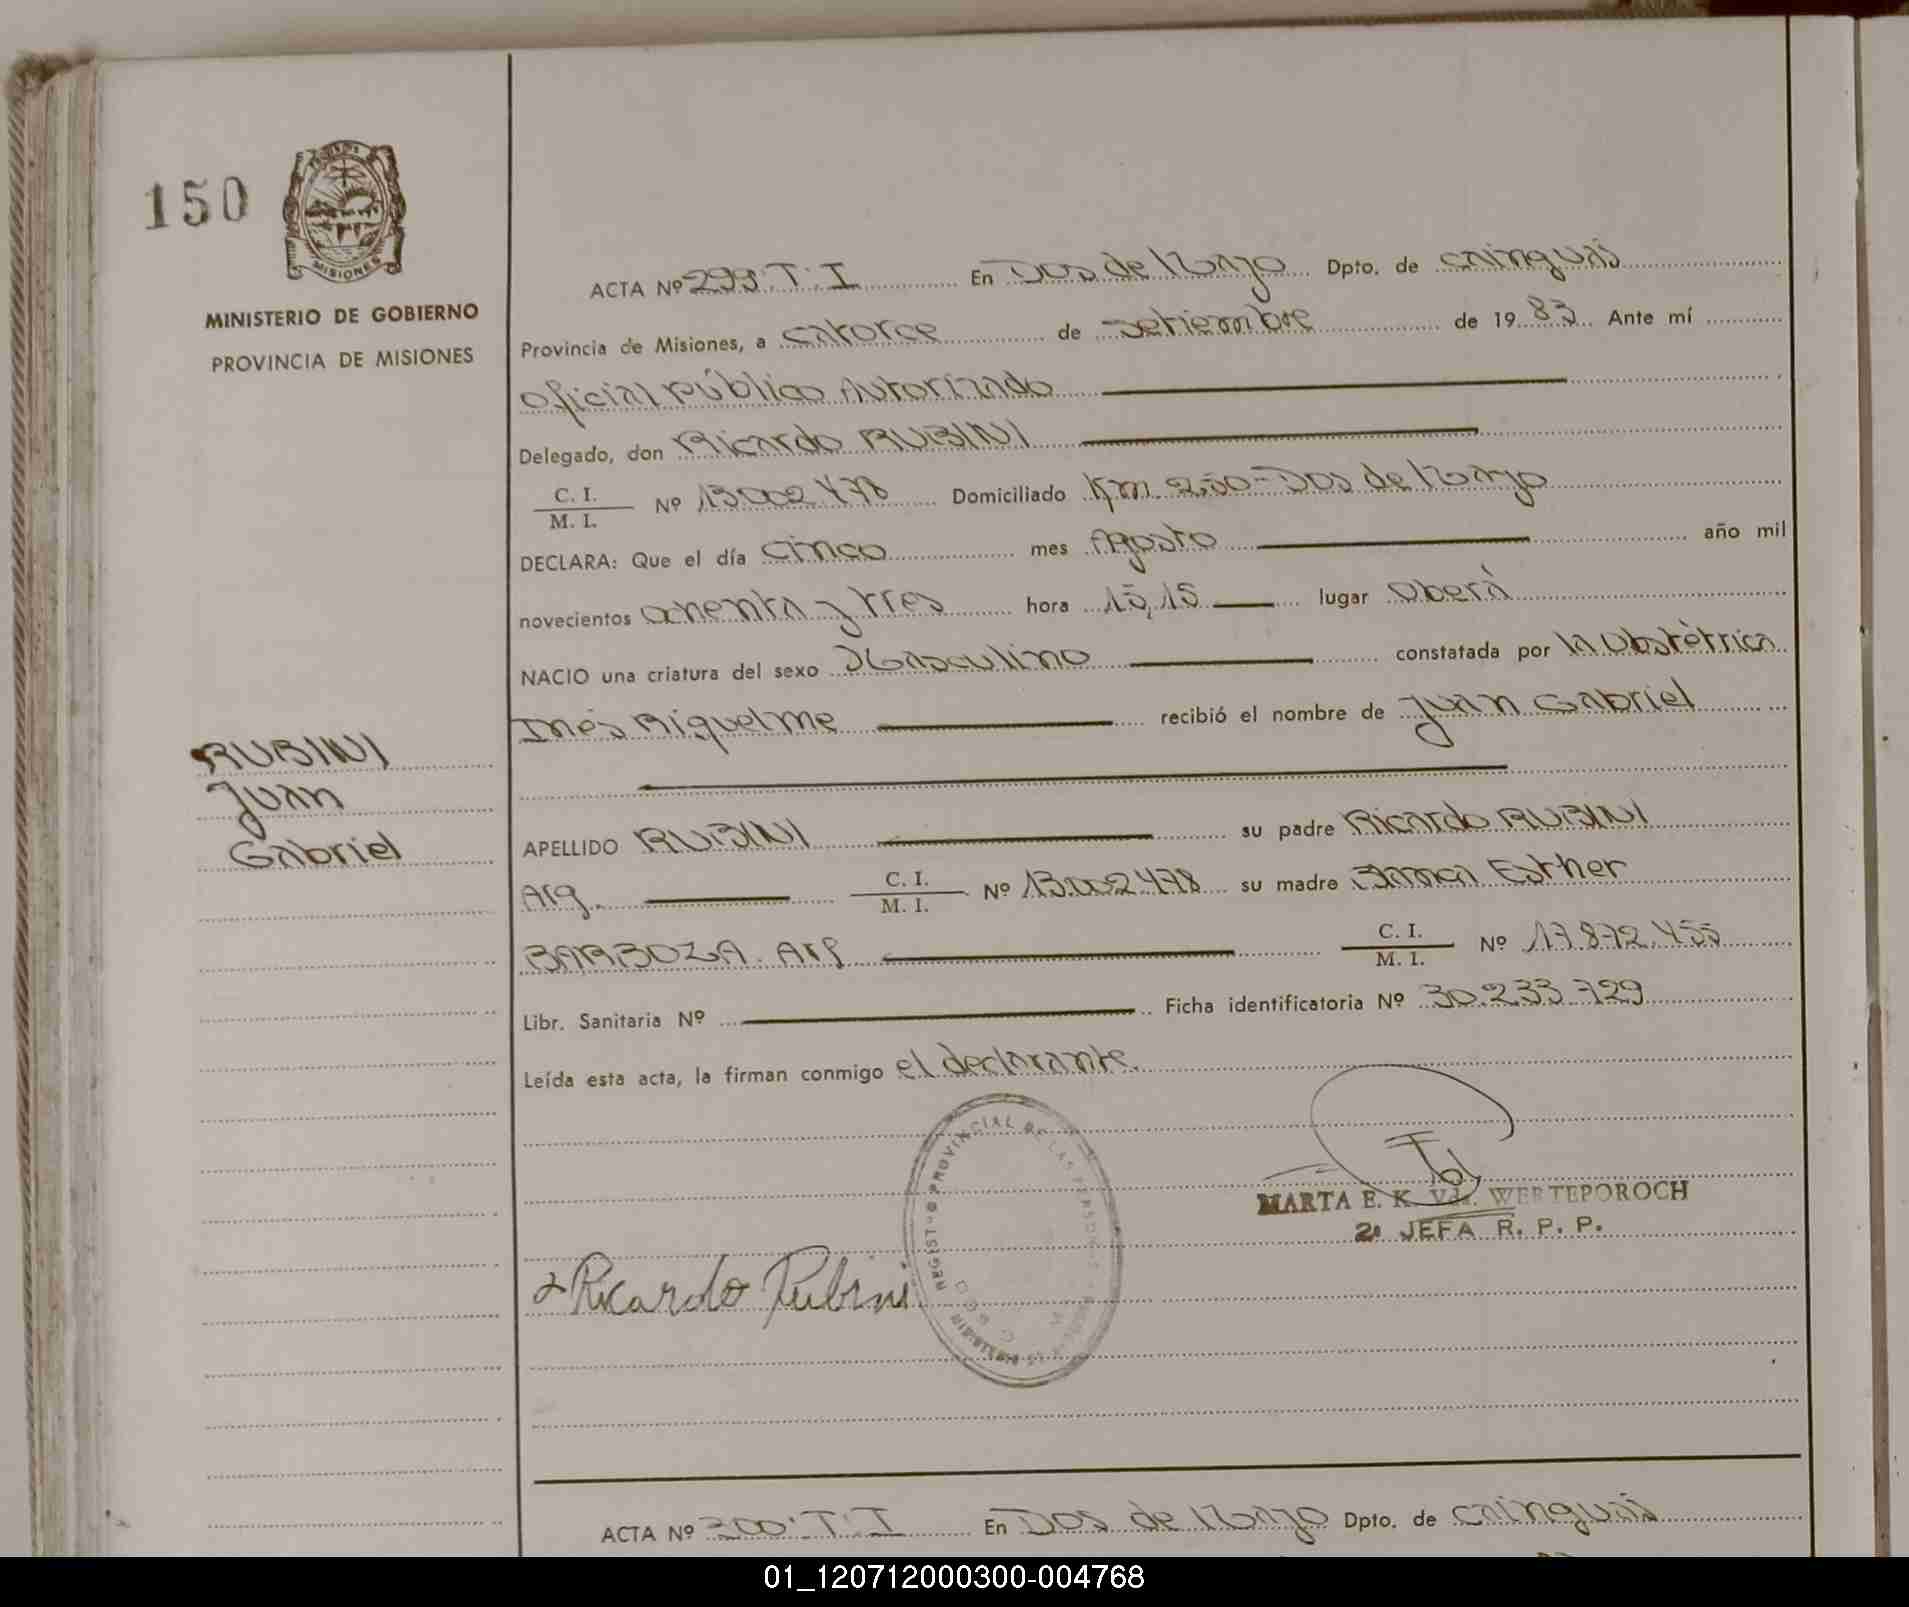 150
MISIONES
MINISTERIO DE GOBIERNO
PROVINCIA DE MISIONES
RUBINI
Juan
Gabriel
ACTA Nº 299 T. I En Dos de Mayo Dpto. de Cainguás
Provincia de Misiones, a catorce de setiembre de 19 83 Ante mí
Oficial Público Autorizado
Delegado, don Ricardo RUBINI
C. I.
M. I.
Nº 13.002.478 Domiciliado Km. 250 - Dos de Mayo
DECLARA: Que el día cinco mes Agosto año mil
novecientos ochenta y tres hora 15,15 lugar Oberá
NACIO una criatura del sexo Masculino constatada por la Obstétrica
Inés Riquelme recibió el nombre de Juan Gabriel
APELLIDO RUBINI su padre Ricardo RUBINI
Arg. C. I.
M. I.
Nº 13.002.478 su madre Esther
BARBOZA. Arg C. I.
M. I.
Nº 17.872.455
Libr. Sanitaria Nº Ficha identificatoria Nº 30.233.729
Leída esta acta, la firman conmigo el declarante.
PROVINCIAL DE LAS PERSONAS
MARTA E. K. Vda. WERTEPOROCH
2ª JEFA R. P. P.
Ricardo Rubini
ACTA Nº 300 T. I En Dos de Mayo Dpto. de Cainguás
01_120712000300-004768